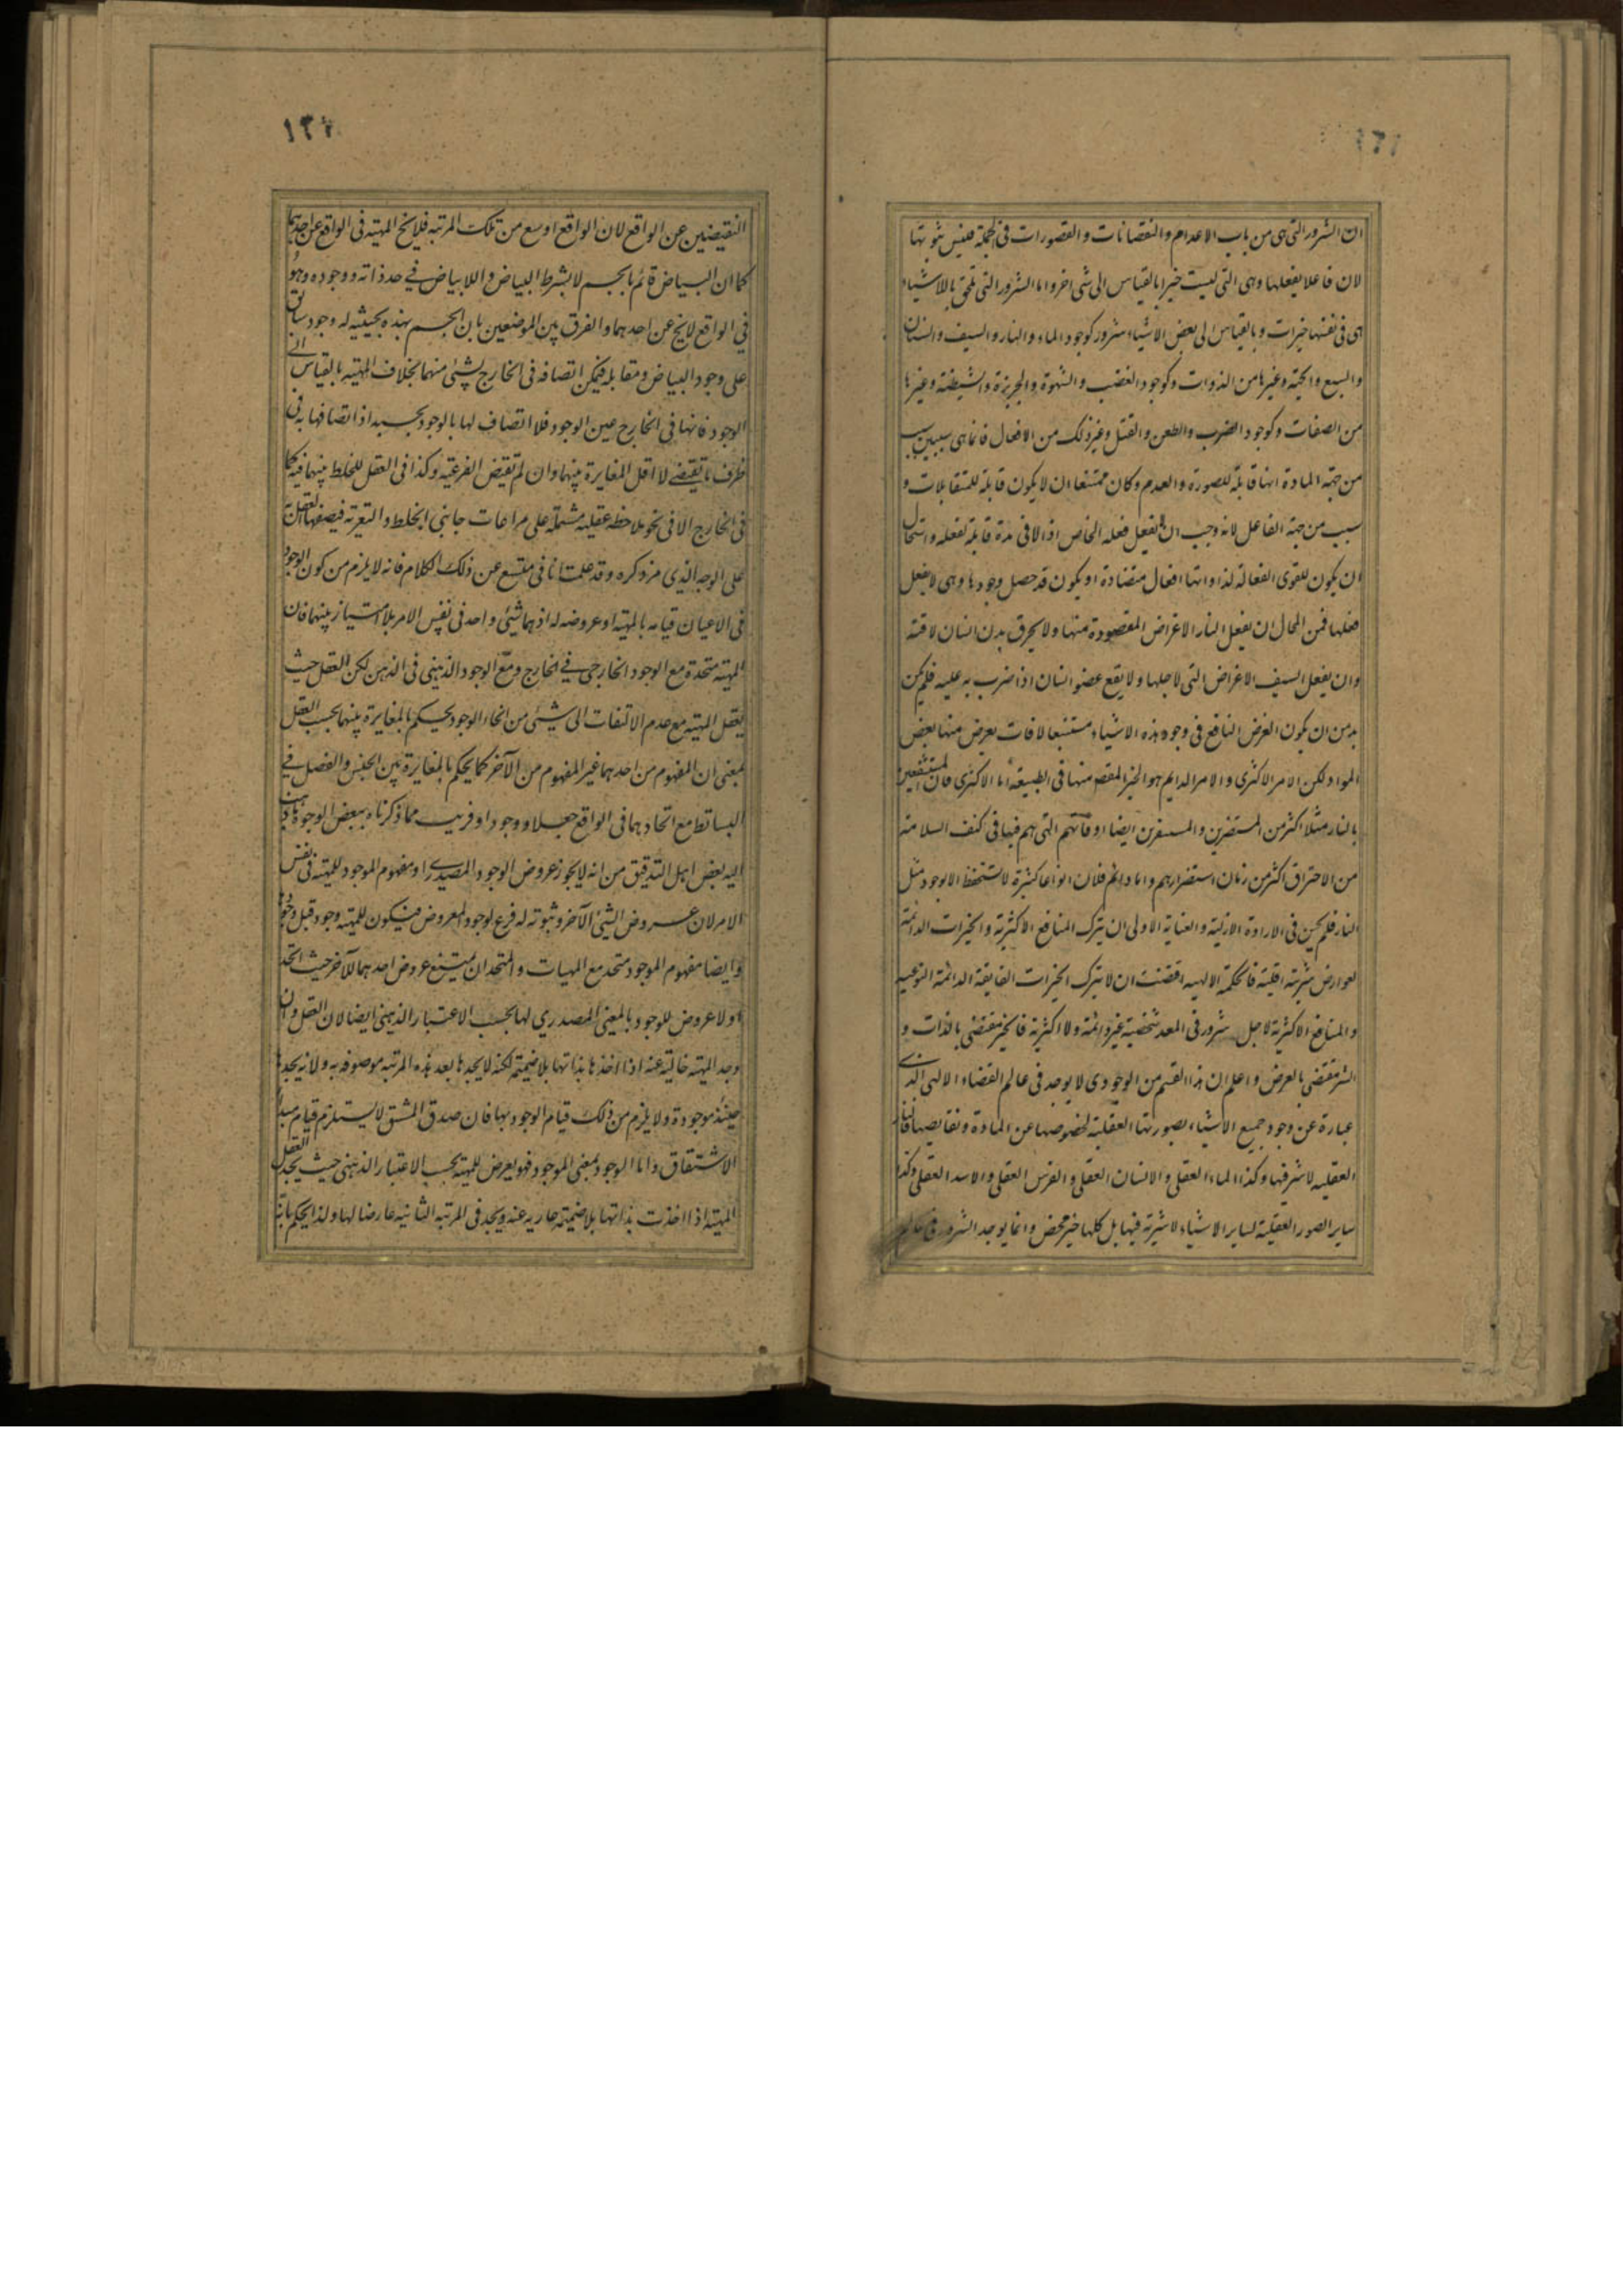 ان الشرور التی هی من باب الاعدام والنقصانات والقصورات فی الجملة فلیس ثبوتها
لان فاعلا یفعلها وهی التی لیست خیرا بالقیاس الی شی اخر واما الشرور التی تلحق بالاشیاء
هی فی نفسها خیرات وبالقیاس الی بعض الاشیاء شرور کوجود الماء والنار والسیف والسنان
والسبع والحیة وغیرها من الذوات وکوجود الغضب والشهوة والجربزة والشیطنة وغیرها
من الصفات وکوجود الضرب والطعن والقتل وغیر ذلک من الافعال فانما هی بسببین سبب
من جهة المادة انها قابلة للصورة والعدم وکان ممتنعا ان لا یکون قابلة للمتقابلات و
سبب من جهة الفاعل لانه وجب ان یفعل فعله الخاص اذا لاقی مادة قابلة لفعله واستحال
ان یکون للقوی الفعالة لذواتها افعال متضادة او یکون قد حصل وجودها وهی لا یفعل
فعلها فمن المحال ان یفعل النار الاغراض المقصودة منها ولا یحرق بدن انسان لاقته
وان یفعل السیف الاغراض التی لاجلها ولا یقطع عضو انسان اذا ضرب به علیه فلم یکن
بد من ان یکون الغرض النافع فی وجود هذه الاشیاء مستتبعا لافات یعرض منها بعض
المواد ولکن الامر الاکثری والامر الدایم هو الخیر المقصود منها فی الطبیعة اما الاکثری فان المنتفعین
بالنار مثلا اکثر من المستضرین والمستضرین ایضا اوقاتهم التی هم فیها فی کنف السلامة
من الاحتراق اکثر من زمان استضرارهم واما دایم فلان انواعا کثیرة لا تستحفظ الا بوجود مثل
النار فلم یحسن فی الارادة الازلیة والعنایة الاولی ان یترک المنافع الاکثریة والخیرات الدائمة
لعوارض شریة اقلیة فالحکمة الالهیه اقتضت ان لا یترک الخیرات الفایقة الدائمة النوعیه
والمنافع الاکثریة لاجل شرور فی المعد شخصیة غیر دائمة ولا اکثریة فالخیر مقتضی بالذات و
الشر مقتضی بالعرض واعلم ان هذا القسم من الوجودی لا یوجد فی عالم القضاء الالهی الذی
عبارة عن وجود جمیع الاشیاء بصورتها العقلیة لخلوصها عن المادة ونقایصها فالنار
العقلیه لا شر فیها وکذا الماء العقلی والانسان العقلی والفرس العقلی والاسد العقلی وکذا
سایر الصور العقلیة لسایر الاشیاء لا شریة فیها بل کلها خیر محض وانما یوجد الشرور فی عالم
۱۳۲
النقیضین عن الواقع لان الواقع اوسع من تلک المرتبه فلا یخ المهیته فی الواقع عن احدیهما
کما ان البیاض قائم بالجسم لا بشرط البیاض واللابیاض فی حد ذاته ووجوده وهو
فی الواقع لا یخ عن احدهما والفرق بین الموضعین بان الجسم بهذه الحیثیه له وجود سابق
علی وجود البیاض ومقابله فیمکن اتصافه فی الخارج بشئ منهما بخلاف المهیته بالقیاس الی
الوجود فانها فی الخارج عین الوجود فلا اتصاف لها بالوجود بحسبه اذ اتصافها به فی
ظرف ما یقتضی لا اقل المغایرة بینهما وان لم تقتض الفرعیه وکذا فی العقل للخلط بینهما فیه کما
فی الخارج الا فی نحو ملاحظه عقلیه مشتمله علی مراعات جانبی الخلط والتعریه فیصفها العقل به
علی الوجه الذی مر ذکره وقد علمت انا فی متسع عن ذلک الکلام فانه لا یلزم من کون الوجود
فی الاعیان قیامه بالمهیته او عروضه له اذ هما شئ واحد فی نفس الامر بلا امتیاز بینهما فان
المهیته متحدة مع الوجود الخارجی فی الخارج ومع الوجود الذهنی فی الذهن لکن العقل حیث
یعقل المهیته مع عدم الالتفات الی شئ من انحاء الوجود یحکم بالمغایرة بینهما بحسب العقل
بمعنی ان المفهوم من احدهما غیر المفهوم من الآخر کما یحکم بالمغایرة بین الجنس والفصل فی
البسائط مع اتحادهما فی الواقع جعلا ووجودا وقریب مما ذکرناه ببعض الوجوه ما ذهب
الیه بعض اهل التدقیق من انه لا یجوز عروض الوجود المصدری او مفهوم الموجود للمهیته فی نفس
الامر لان عروض الشئ الآخر وثبوته له فرع لوجود المعروض فیکون للمهیته وجود قبل وجودها
وایضا مفهوم الموجود متحد مع المهیات والمتحدان یمتنع عروض احدهما للآخر حیث اتحدا
ولا عروض للوجود بالمعنی المصدری لها بحسب الاعتبار الذهنی ایضا لان العقل وان
وجد المهیته خالیته عنه اذا اخذها بذاتها بلا ضمیمه لکنه لا یجدها بعد هذه المرتبه موصوفه به ولانه یجدها
حینئذ موجودة ولا یلزم من ذلک قیام الوجود بها فان صدق المشتق لا یستلزم قیام مبدأ
الاشتقاق واما الوجود بمعنی الموجود فهو یعرض للمهیته بحسب الاعتبار الذهنی حیث یجد العقل
المهیته اذا اخذت بذاتها بلا ضمیمة عاریه عنه ویجد فی المرتبه الثانیه عارضا لها ولذا یحکم بانه